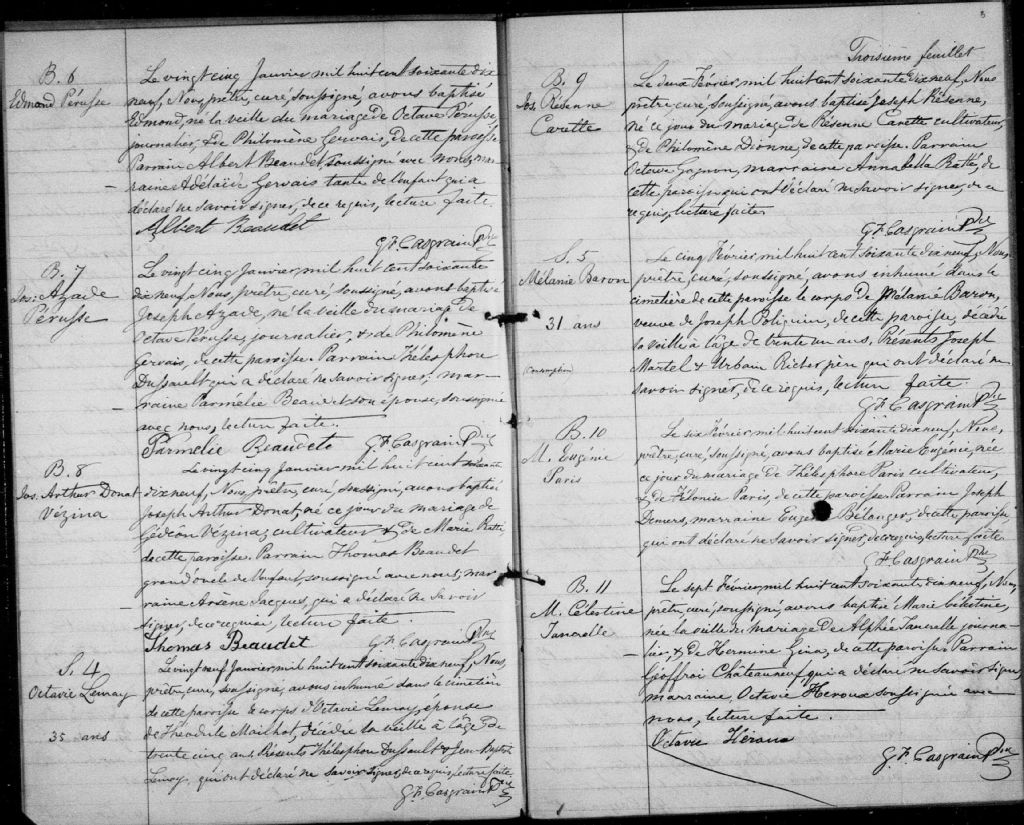 B. 6
Edmond Pérusse
Le vingt cinq Janvier mil huit cent soixante dix
neuf, Nous, prêtre, curé, soussigné, avons baptisé
Edmond, né la veille du mariage de Octave Pérusse,
journalier, & de Philomène Gervais, de cette paroisse.
Parrain Albert Beaudet, soussigné avec nous, mar-
raine Adélaïde Gervais tante de l'enfant qui a
déclaré ne savoir signer, de ce requis, lecture faite.
Albert Beaudet
G. F. Casgrain Ptre
B. 7
Jos. Azade
Pérusse
Le vingt cinq Janvier mil huit cent soixante
dix neuf, Nous, prêtre, curé, soussigné, avons baptisé
Joseph Azade, né la veille du mariage de
Octave Pérusse, journalier, & de Philomène
Gervais, de cette paroisse. Parrain Thélesphore
Dussault qui a déclaré ne savoir signer, mar-
raine Parmélie Beaudet son épouse, soussignée
avec nous, lecture faite.
Parmélie Beaudet
G. F. Casgrain Ptre
B. 8
Jos. Arthur Donat
Vézina
Le vingt cinq Janvier mil huit cent soixante
dix neuf, Nous, prêtre, curé, soussigné, avons baptisé
Joseph Arthur Donat, né ce jour du mariage de
Gédéon Vézina, cultivateur & de Marie
de cette paroisse. Parrain Thomas Beaudet
grand oncle de l'enfant, soussigné avec nous, mar-
raine Arsène Jacques, qui a déclaré ne savoir
signer, de ce requis, lecture faite.
Thomas Beaudet
G. F. Casgrain Ptre
S. 4
Octavie Lemay
35 ans
Le vingt neuf Janvier mil huit cent soixante dix neuf, Nous,
prêtre, curé, soussigné, avons inhumé dans le cimetière
de cette paroisse le corps d'Octavie Lemay, épouse
de Théodule Mailhot, décédée la veille à l'âge de
trente cinq ans. Présents Thélesphore Dussault & Jean Baptiste
Lemay, qui ont déclaré ne savoir signer, de ce requis, lecture faite
G. F. Casgrain Ptre
3
Troisième feuillet
B. 9
Jos. Résenne
Carette
Le deux Février, mil huit cent soixante dix neuf, Nous
prêtre, curé, soussigné, avons baptisé Joseph Résenne,
né ce jour du mariage de Résenne Carette cultivateur,
& de Philomène Dionne, de cette paroisse. Parrain
Octave Gagnon, marraine Annabella Ratté, de
cette paroisse, qui ont déclaré ne savoir signer, de ce
requis, lecture faite.
G. F. Casgrain Ptre
S. 5
Mélanie Baron
31 ans
Consomption
Le cinq Février, mil huit cent soixante dix neuf, Nous,
prêtre, curé, soussigné, avons inhumé dans le
cimetière de cette paroisse le corps de Mélanie Baron,
veuve de Joseph Poliquin, de cette paroisse, décédée
la veille à l'âge de trente un ans, Présents Joseph
Martel & Urbain Richer père qui ont déclaré ne
savoir signer, de ce requis, lecture faite.
G. F. Casgrain Ptre
B. 10
M. Eugénie
Paris
Le six Février, mil huit cent soixante dix neuf, Nous,
prêtre, curé, soussigné, avons baptisé Marie Eugénie, née
ce jour du mariage de Thélesphore Paris cultivateur,
& de Félonise Paris, de cette paroisse. Parrain Joseph
Demers, marraine Bélanger, de cette paroisse,
qui ont déclaré ne savoir signer, de ce requis, lecture faite.
G. F. Casgrain Ptre
B. 11
M. Célestine
Tancrelle
Le sept Février, mil huit cent soixante dix neuf, Nous,
prêtre, curé, soussigné, avons baptisé Marie Célestine,
née la veille du mariage de Alphée Tancrelle journa-
lier, & de Hermine de cette paroisse. Parrain
Geoffroi Châteauneuf qui a déclaré ne savoir signer,
marraine Octavie Heroux soussignée avec
nous, lecture faite.
Octavie Héroux
G. F. Casgrain Ptre